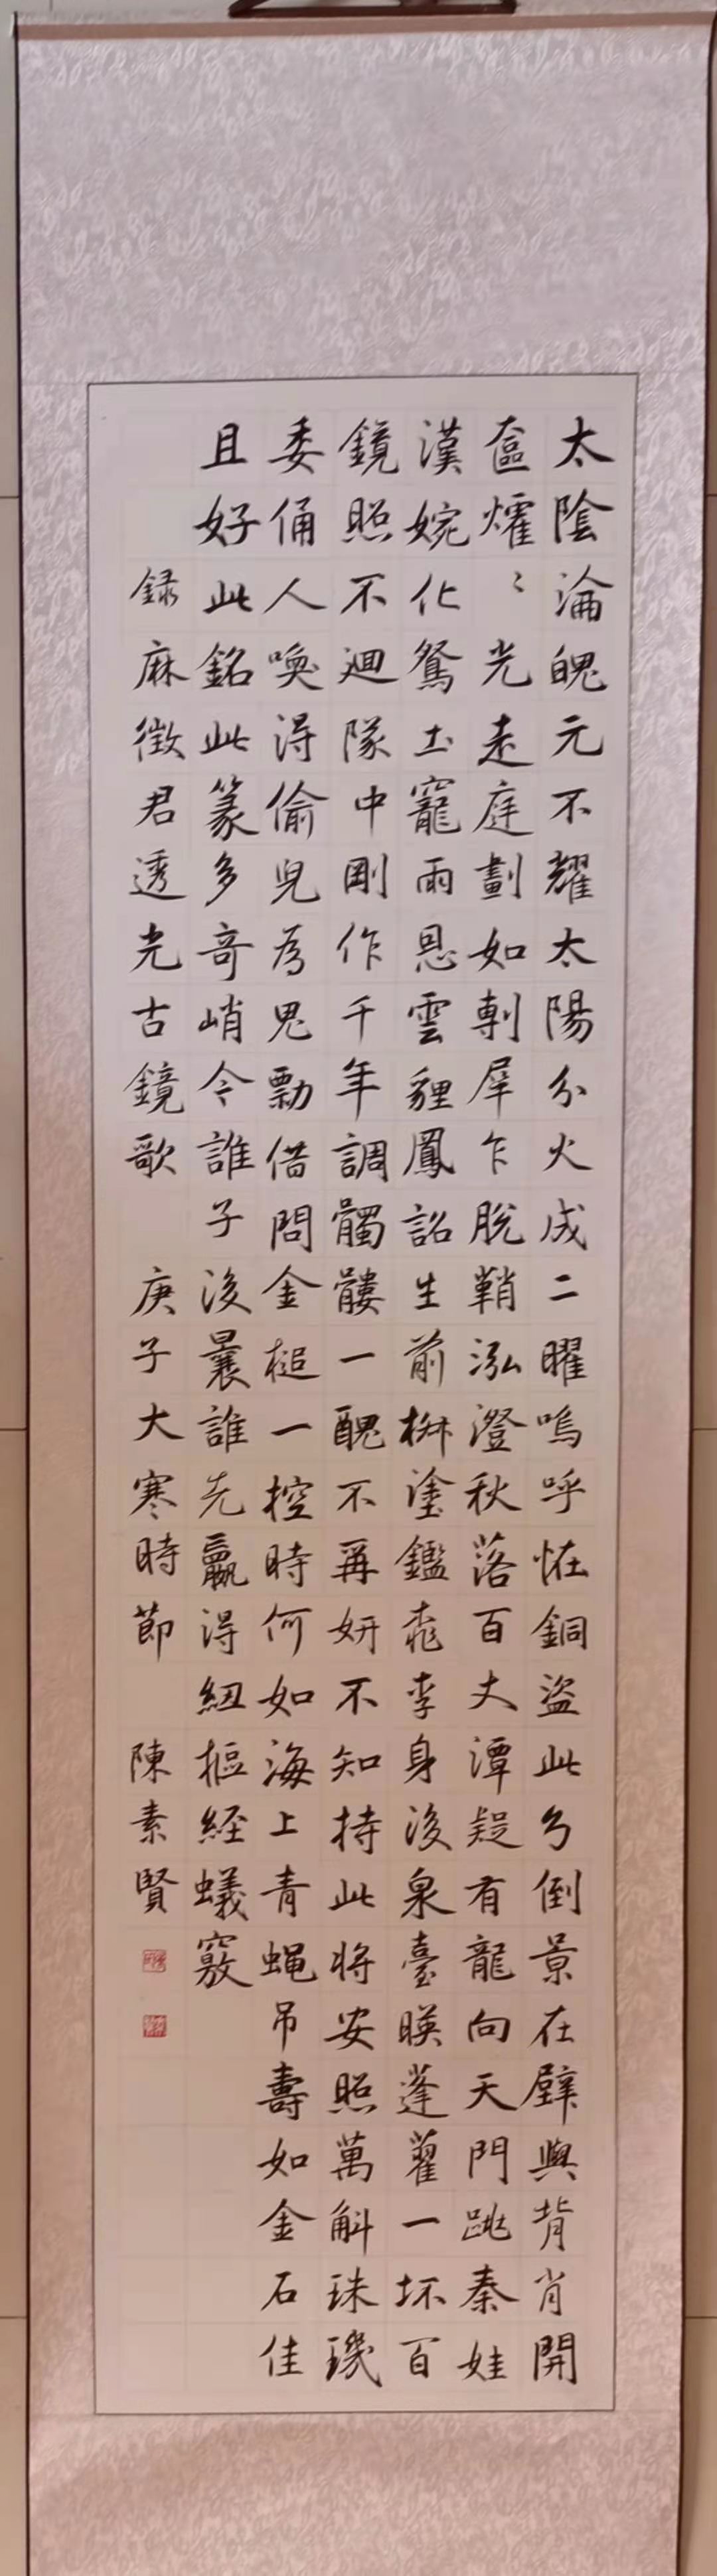 太陰淪魄元不耀太陽分火成二曜嗚呼怪銅盜此兮倒景在壁與背肖開
奩爠〻光走庭劃如剸犀乍脫鞘泓澄秋落百丈潭疑有龍向天門跳秦娃
漢婉化鴛土寵雨恩雲貍鳳詔生前栟塗鑑桃李身後泉臺暎蓬藋一坏百
鏡照不迴隊中剛作千年調髑髏一醜不再妍不知持此將安照萬斛珠璣
委俑人喚得偷兒為鬼勡借問金槌一控時何如海上青蝇吊壽如金石佳
且好此銘此篆多奇峭今誰子後曩誰先贏得紐摳經蟻竅
録麻徵君透光古鏡歌 庚子大寒時節 陳素賢